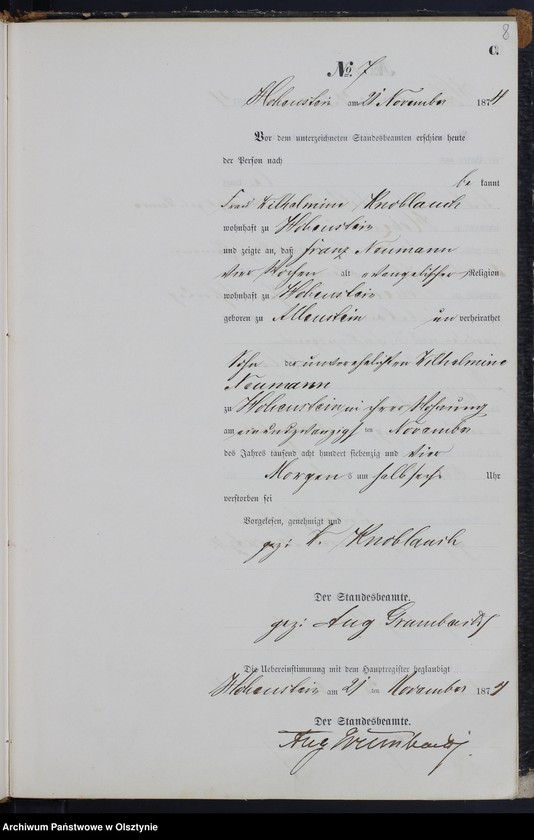 8
C.
No. 7
Hohenstein am 21 November 1874
Vor dem unterzeichneten Standesbeamten erschien heute
der Person nach
be kannt
Frau Wilhelmine Knoblauch
wohnhaft zu Hohenstein
und zeigte an, daß Franz Neumann
vier Wochen alt evangelischer Religion
wohnhaft zu Hohenstein
geboren zu Allenstein un verheirathet
Sohn der unverehelichten Wilhelmine
Neumann
zu Hohenstein in ihrer Wohnung
am einundzwanzigsten ten November
des Jahres tausend acht hundert siebenzig und vier
Morgens um halb sechs Uhr
verstorben sei
Vorgelesen, genehmigt und
gez: W. Knoblauch
Der Standesbeamte.
gez: Aug
Die Uebereinstimmung mit dem Hauptregister beglaubigt
Hohenstein am 21 ten November 1874
Der Standesbeamte.
Aug
Archiwum Państwowe w Olsztynie